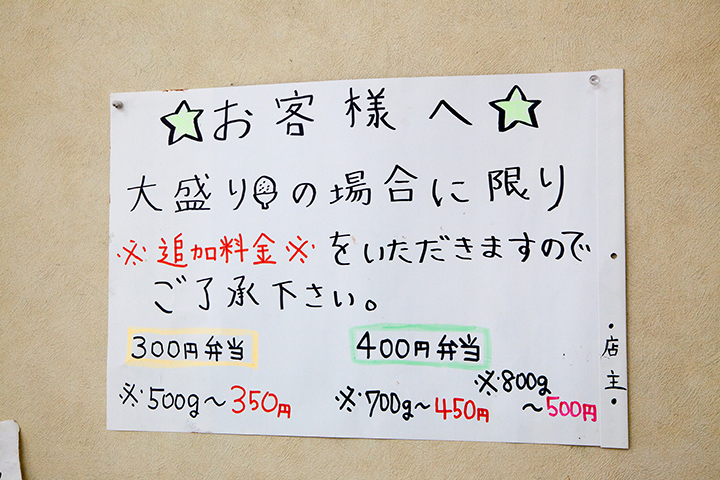 ☆お客様へ☆
大盛りの場合に限り
※追加料金※をいただきますので
ご了承下さい。
300円弁当
※500g〜350円
400円弁当
※700g〜450円
※800g
〜500円
・店主・